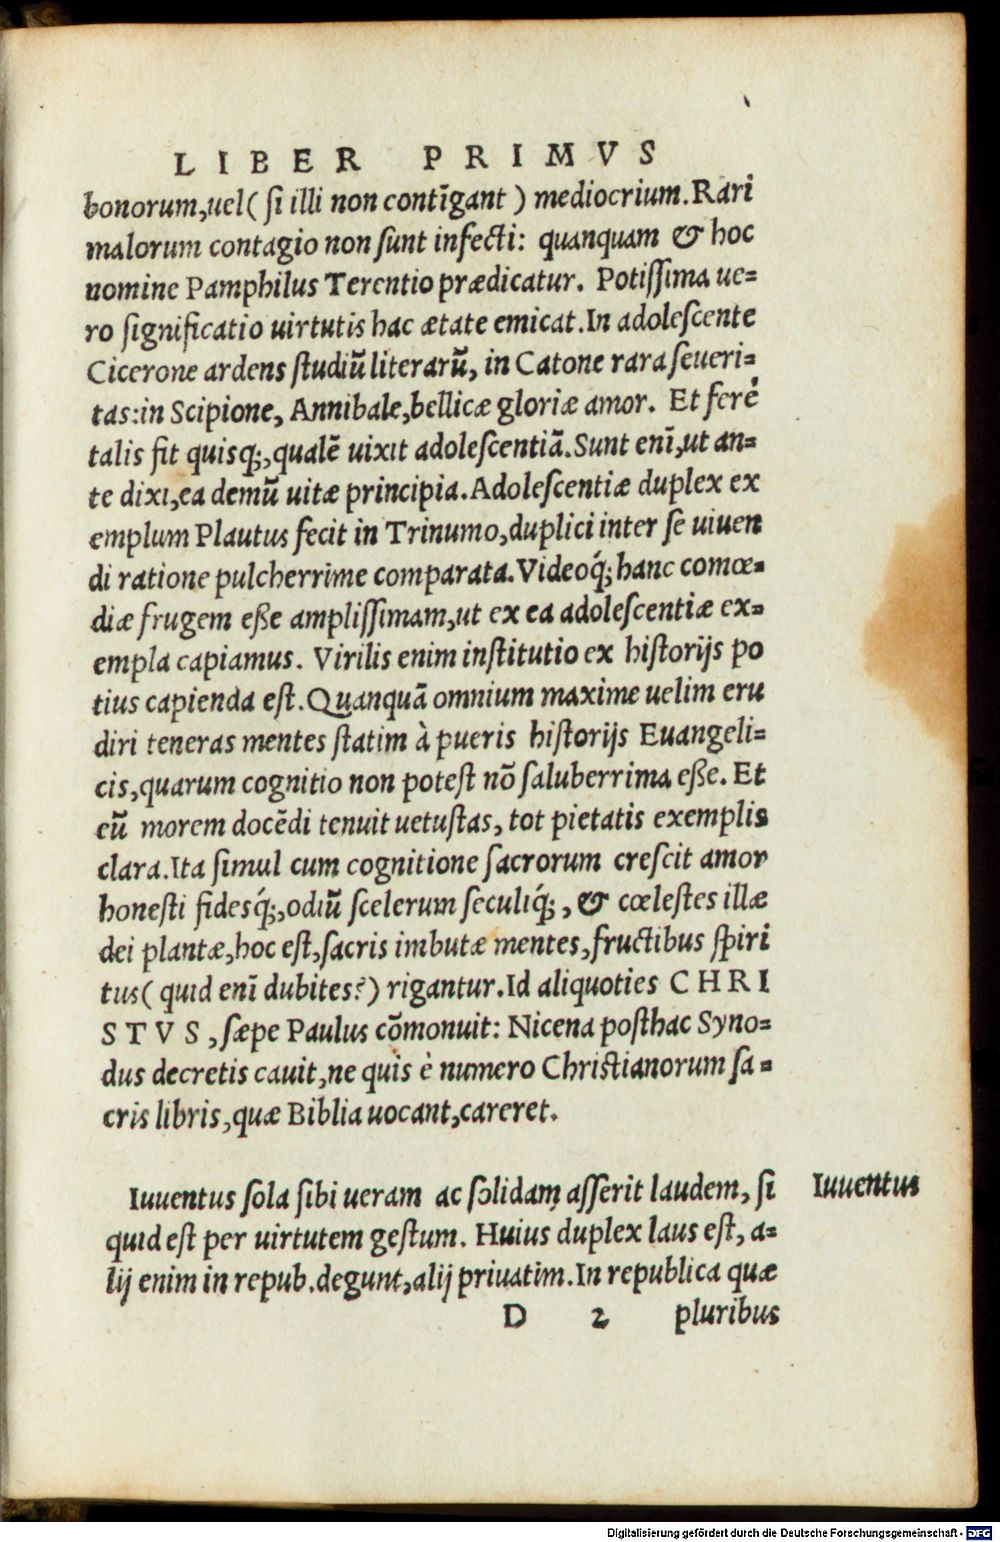 LIBER PRIMVS
bonorum,uel( ſi illi non contīgant ) mediocrium. Rari
malorum contagio non ſunt infecti: quanquam & hoc
nomine Pamphilus Terentio prædicatur. Potiſſima ue=
ro ſignificatio uirtutis hac ætate emicat. In adoleſcente
Cicerone ardens ſtudiū literarū, in Catone rara ſeueri=
tas: in Scipione, Annibale, bellicæ gloriæ amor. Et ferè
talis fit quisq;, qualē uixit adoleſcentiā. Sunt enī, ut an=
te dixi, ea demū uitæ principia. Adoleſcentiæ duplex ex
emplum Plautus fecit in Trinumo, duplici inter ſe uiuen
di ratione pulcherrime comparata. Videoq́; hanc comœ=
diæ frugem eße ampliſſimam, ut ex ea adoleſcentiæ ex=
empla capiamus. Virilis enim inſtitutio ex hiſtorijs po
tius capienda eſt. Quanquā omnium maxime uelim eru
diri teneras mentes ſtatim à pueris hiſtorijs Euangeli=
cis, quarum cognitio non poteſt nō ſaluberrima eße. Et
eū morem docēdi tenuit uetuſtas, tot pietatis exemplis
clara. Ita ſimul cum cognitione ſacrorum creſcit amor
honeſti fidesq́;, odiū ſcelerum ſeculiq́; , & cœleſtes illæ
dei plantæ, hoc eſt, ſacris imbutæ mentes, fructibus ſpiri
tus( quid enī dubites?) rigantur. Id aliquoties CHRI
STVS, ſæpe Paulus cōmonuit: Nicena poſthac Syno=
dus decretis cauit, ne quis è numero Chriſtianorum ſa=
cris libris, quæ Biblia uocant, careret.
Iuuentus ſola ſibi ueram ac ſolidam aſſerit laudem, ſi
Iuuentus
quid eſt per uirtutem geſtum. Huius duplex laus eſt, a=
lij enim in repub. degunt, alij priuatim. In republica quæ
D 2 pluribus
Digitalisierung gefördert durch die Deutsche Forschungsgemeinschaft - DFG